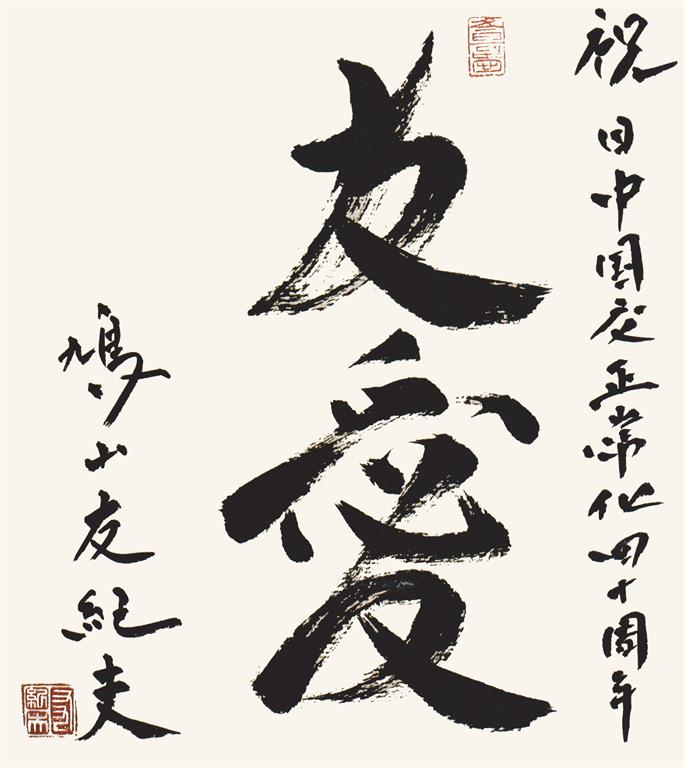 祝日中国交正常化四十周年
友愛
鳩山友紀夫